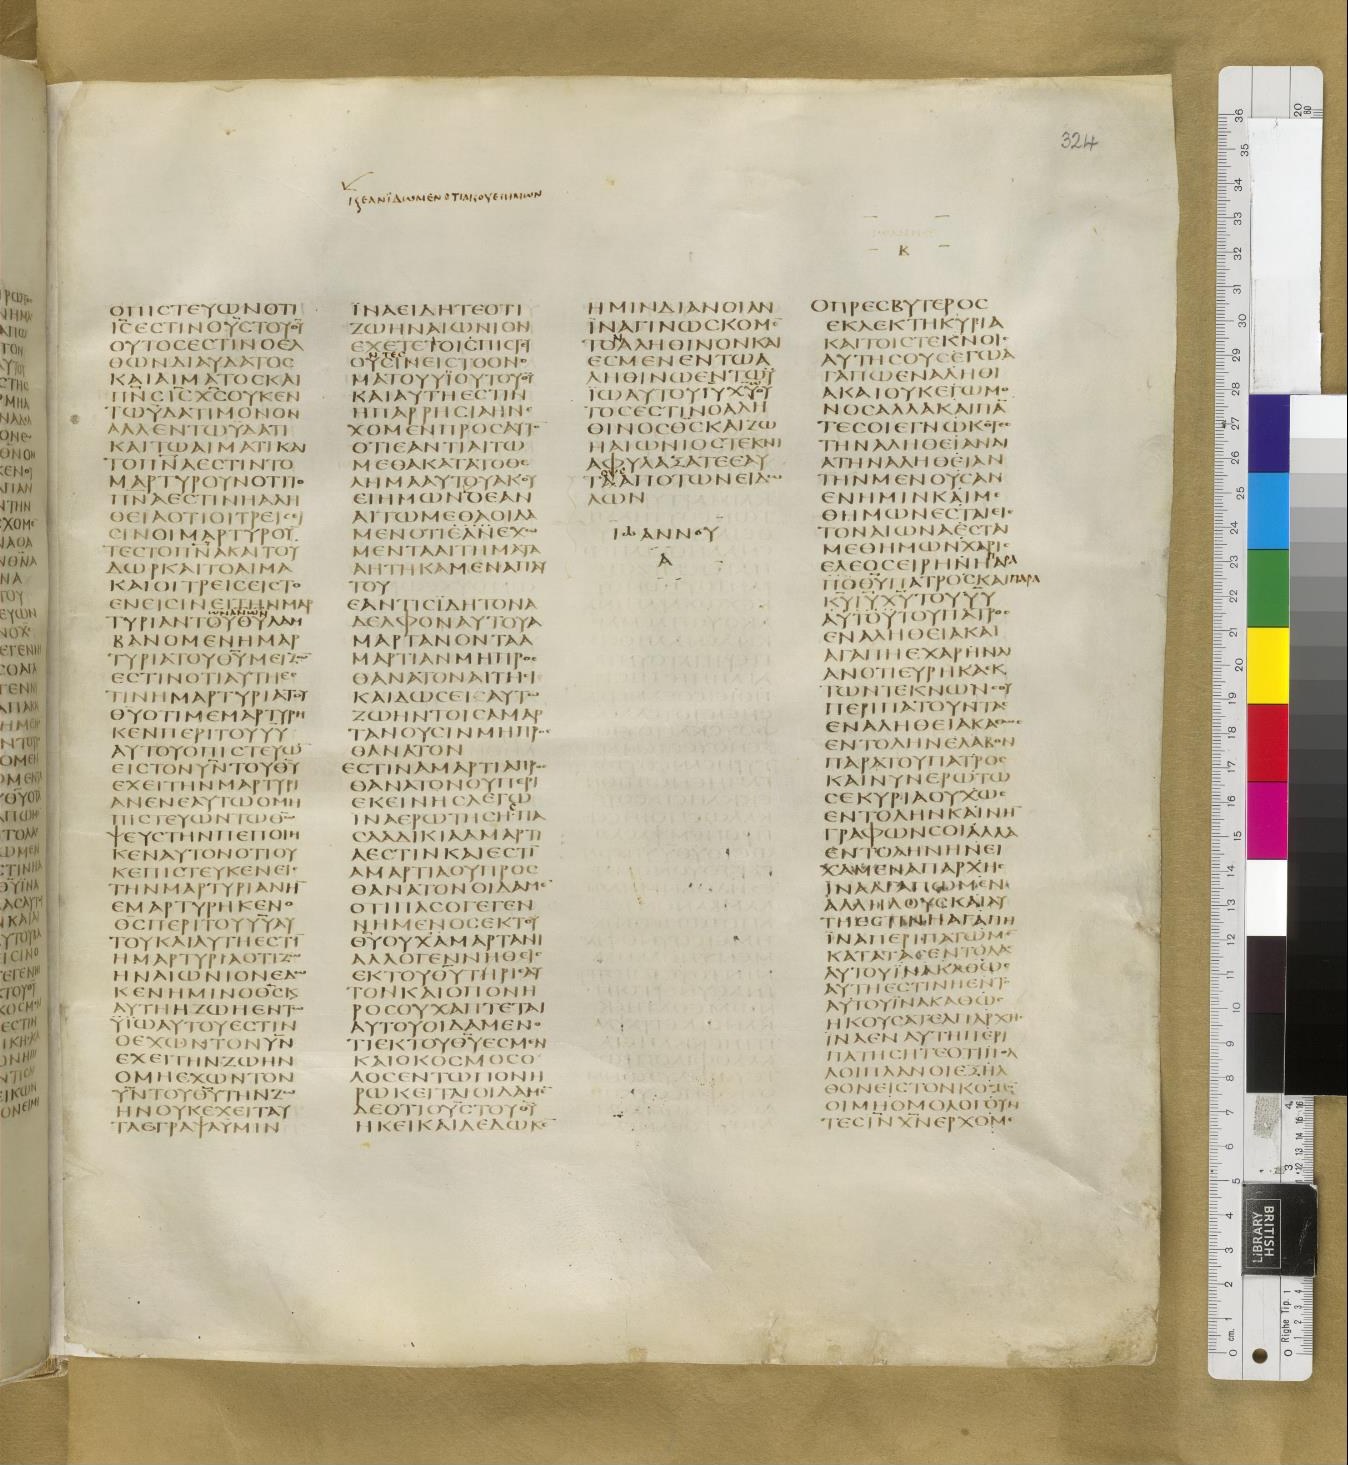 324
κ̣ εανϊδωμενοτιακουειημων
Β
ΟΠΙϹΤΕΥΩΝΟΤΙ
ΙϹ̅ΕϹΤΙΝΟΥϹΤΟΥΘΥ̅
ΟΥΤΟϹΕϹΤΙΝΟΕΛ
ΘΩΝΔΙΑΥΔΑΤΟϹ
ΚΑΙΑΙΜΑΤΟϹΚΑΙ
ΠΝ̅ϹΙϹ̅ΧϹ̅ΟΥΚΕΝ
ΤΩΫΔΑΤΙΜΟΝΟΝ
ΑΛΛΕΝΤΩΥΔΑΤΙ
ΚΑΙΤΩΑΙΜΑΤΙΚΑΙ
ΤΟΠΝ̅ΑΕϹΤΙΝΤΟ
ΜΑΡΤΥΡΟΥΝΟΤΙΤΟ
ΠΝΑΕϹΤΙΝΗΑΛΗ
ΘΕΙΑΟΤΙΟΙΤΡΕΙϹΕΙ
ϹΙΝΟΙΜΑΡΤΥΡΟΥ
ΤΕϹΤΟΠΝ̅ΑΚΑΙΤΟΥ
ΔΩΡΚΑΙΤΟΑΙΜΑ
ΚΑΙΟΙΤΡΕΙϹΕΙϹΤΟ
ΕΝΕΙϹΙΝΕΙΤΗΝΜΑΡ
ΤΥΡΙΑΝΤΟΥΘΥ̅ΛΑΜ
ΒΑΝΟΜΕΝΗΜΑΡ
ΤΥΡΙΑΤΟΥΘΥ̅ΜΕΙΖΩ̅
ΕϹΤΙΝΟΤΙΑΥΤΗΕϹ
ΤΙΝΗΜΑΡΤΥΡΙΑΤΟΥ
ΘΥΟΤΙΜΕΜΑΡΤΥΡΗ
ΚΕΝΠΕΡΙΤΟΥΥΥ̅
ΑΥΤΟΥΟΠΙϹΤΕΥΩ̅
ΕΙϹΤΟΝΥΝ̅ΤΟΥΘΥ̅
ΕΧΕΙΤΗΝΜΑΡΤΥΡΙ
ΑΝΕΝΕΑΥΤΩΟΜΗ
ΠΙϹΤΕΥΩΝΤΩΘΩ̅
ΨΕΥϹΤΗΝΠΕΠΟΙΗ
ΚΕΝΑΥΤΟΝΟΤΙΟΥ
ΚΕΠΙϹΤΕΥΚΕΝΕΙϹ
ΤΗΝΜΑΡΤΥΡΙΑΝΗ̅
ΕΜΑΡΤΥΡΗΚΕΝΟ
ΘϹΠΕΡΙΤΟΥΥΥ̅ΑΥ
ΤΟΥΚΑΙΑΥΤΗΕϹΤΙ̅
ΗΜΑΡΤΥΡΙΑΟΤΙΖΩ̅
ΗΝΑΙΩΝΙΟΝΕΔΩ
ΚΕΝΗΜΙΝΟΘϹ̅Κ
ΑΥΤΗΗΖΩΗΕΝΤΩ
ΫΙΩΑΥΤΟΥΕϹΤΙΝ
ΟΕΧΩΝΤΟΝΥΝ̅
ΕΧΕΙΤΗΝΖΩΗΝ
ΟΜΗΕΧΩΝΤΟΝ
ΥΝ̅ΤΟΥΘΥ̅ΤΗΝΖΩ
ΗΝΟΥΚΕΧΕΙΤΑΥ
ΤΑΕΓΡΑΨΑΥΜΙΝ
ΪΝΑΕΙΔΗΤΕΟΤΙ
ΖΩΗΝΑΙΩΝΙΟΝ
ΕΧΕΤΕΤΟΙϹΠΙϹΤΕΥ
ΟΥϹΙΝΕΙϹΤΟΟΝΟ
ΜΑΤΟΥΥΪΟΥΤΟΥΘΥ̅
ΚΑΙΑΥΤΗΕϹΤΙΝ
ΗΠΑΡΡΗϹΙΑΗΝΕ
ΧΟΜΕΝΠΡΟϹΑΥΤΟ̅
ΟΤΙΕΑΝΤΙΑΙΤΩ
ΜΕΘΑΚΑΤΑΤΟΘΕ
ΛΗΜΑΑΥΤΟΥΑΚΟΥ
ΕΙΗΜΩΝΌΕΑΝ
ΑΙΤΩΜΕΘΑΟΙΔΑ
ΜΕΝΟΤΙΕΑΝΕΧΩ
ΜΕΝΤΑΑΙΤΗΜΑΤΑ
ΑΗΤΗΚΑΜΕΝΑΠΑΥ
ΤΟΥ
ΕΑΝΤΙϹΪΔΗΤΟΝΑ
ΔΕΛΦΟΝΑΥΤΟΥΑ
ΜΑΡΤΑΝΟΝΤΑΑ
ΜΑΡΤΙΑΝΜΗΠΡΟϹ
ΘΑΝΑΤΟΝΑΙΤΗϹΙ
ΚΑΙΔΩϹΕΙϹΑΥΤΩ
ΖΩΗΝΤΟΙϹΑΜΑΡ
ΤΑΝΟΥϹΙΝΜΗΠΡΟϹ
ΘΑΝΑΤΟΝ
ΕϹΤΙΝΑΜΑΡΤΙΑΠΡΟϹ
ΘΑΝΑΤΟΝΟΥΠΕΡΙ
ΕΚΕΙΝΗϹΛΕΓΩ
ΪΝΑΕΡΩΤΗϹΗΠΑ
ϹΑΑΔΙΚΙΑΑΜΑΡΤΙ
ΑΕϹΤΙΝΚΑΙΕϹΤΙ̅
ΑΜΑΡΤΙΑΟΥΠΡΟϹ
ΘΑΝΑΤΟΝΟΙΔΑΜΕ̅
ΟΤΙΠΑϹΟΓΕΓΕΝ
ΝΗΜΕΝΟϹΕΚΤΟΥ
ΘΥ̅ΟΥΧΑΜΑΡΤΑΝΙ
ΑΛΛΟΓΕΝΝΗΘΕΙϹ
ΕΚΤΟΥΘΥ̅ΤΗΡΙΑΥ
ΤΟΝΚΑΙΟΠΟΝΗ
ΡΟϹΟΥΧΑΠΤΕΤΑΙ
ΑΥΤΟΥΟΙΔΑΜΕΝΟ
ΤΙΕΚΤΟΥΘΥ̅ΕϹΜΕΝ
ΚΑΙΟΚΟϹΜΟϹΟ
ΛΟϹΕΝΤΩΠΟΝΗ
ΡΩΚΕΙΤΑΙΟΙΔΑΜΕ̅
ΔΕΟΤΙΟΥϹ̅ΤΟΥΘΥ̅
ΗΚΕΙΚΑΙΔΕΔΩΚΕ̅
ΗΜΙΝΔΙΑΝΟΙΑΝ
ΪΝΑΓΙΝΩϹΚΟΜΕ̅
ΤΟΑΛΗΘΙΝΟΝΚΑΙ
ΕϹΜΕΝΕΝΤΩΑ
ΛΗΘΙΝΩΕΝΤΩΫ
ΙΩΑΥΤΟΥΙΥ̅ΧΥ̅ΟΥ
ΤΟϹΕϹΤΙΝΟΑΛΗ
ΘΙΝΟϹΘϹ̅ΚΑΙΖΩ
ΗΑΙΩΝΙΟϹΤΕΚΝΙ
ΑΦΥΛΑΞΑΤΕΕΑΥ
ΤΑΑΠΟΤΩΝΕΙΔΩ
ΛΩΝ
ΙΩΑΝΝΟΥ
Α
ΟΠΡΕϹΒΥΤΕΡΟϹ
ΕΚΛΕΚΤΗΚΥΡΙΑ
ΚΑΙΤΟΙϹΤΕΚΝΟΙϹ
ΑΥΤΗϹΟΥϹΕΓΩΑ
ΓΑΠΩΕΝΑΛΗΘΙ
ΑΚΑΙΟΥΚΕΓΩΜΟ
ΝΟϹΑΛΛΑΚΑΙΠΑ̅
ΤΕϹΟΙΕΓΝΩΚΟΤΕϹ
ΤΗΝΑΛΗΘΕΙΑΝΔΙ
ΑΤΗΝΑΛΗΘΕΙΑΝ
ΤΗΝΜΕΝΟΥϹΑΝ
ΕΝΗΜΙΝΚΑΙΜΕ
ΘΗΜΩΝΕϹΤΑΙΕΙϹ
ΤΟΝΑΙΩΝΑΕϹΤΑΙ
ΜΕΘΗΜΩΝΧΑΡΙϹ
ΕΛΕΟϹΕΙΡΗΝΗΠΑΡΑ
ΘΥ̅ΠΑΤΡΟϹΚΑΙΠΑΡΑ
ΚΥ̅ΙΥ̅ΧΥ̅ΤΟΥΥΥ
ΑΥΤΟΥΤΟΥΠΑΤΡΟϹ
ΕΝΑΛΗΘΕΙΑΚΑΙ
ΑΓΑΠΗΕΧΑΡΗΝΛΙ
ΑΝΟΤΙΕΥΡΗΚΑΕΚ
ΤΩΝΤΕΚΝΩΝϹΟΥ
ΠΕΡΙΠΑΤΟΥΝΤΑϹ
ΕΝΑΛΗΘΕΙΑΚΑΘΩϹ
ΕΝΤΟΛΗΝΕΛΑΒΟΝ
ΠΑΡΑΤΟΥΠΑΤΡΟϹ
ΚΑΙΝΥΝΕΡΩΤΩ
ϹΕΚΥΡΙΑΟΥΧΩϹ
ΕΝΤΟΛΗΝΚΑΙΝΗ̅
ΓΡΑΦΩΝϹΟΙΑΛΛΑ
ΕΝΤΟΛΗΝΗΝΕΙ
ΧΑΜΕΝΑΠΑΡΧΗϹ
ΪΝΑΑΓΑΠΩΜΕΝ
ΑΛΛΗΛΟΥϹΚΑΙΑΥ
ΤΗΕϹΤΙΝΗΑΓΑΠΗ
ΪΝΑΠΕΡΙΠΑΤΩΜΕ̅
ΚΑΤΑΤΑϹΕΝΤΟΛΑϹ
ΑΥΤΟΥΪΝΑΚΑΘΩϹ
ΑΥΤΗΕϹΤΙΝΗΕΝΤΟ
ΑΥΤΟΥΪΝΑΚΑΘΩϹ
ΗΚΟΥϹΑΤΕΑΠΑΡΧΗϹ
ΪΝΑΕΝΑΥΤΗΠΕΡΙ
ΠΑΤΗϹΗΤΕΟΤΙΠΟΛ
ΛΟΙΠΛΑΝΟΙΕΞΗΛ
ΘΟΝΕΙϹΤΟΝΚΟϹΜΟ̅
ΟΙΜΗΟΜΟΛΟΓΟΥΝ
ΤΕϹΙΝ̅ΧΝ̅ΕΡΧΟΜΕ